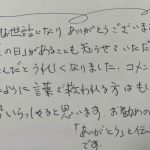 お世話になり ありがとうございま
の日」があることも知らせていただ
んだとうれしくなりました。コメン
ように言葉で救われる方はも
いらっしゃると思います。お勧めの
「ありがとう」と伝
です。